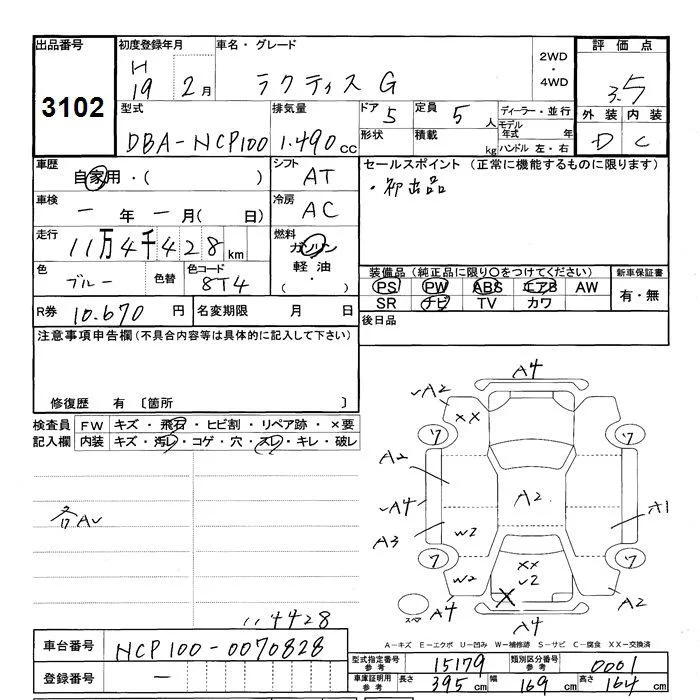 出品番号 初度登録年月 車名・グレード 2WD・4WD 評価点
3102 H19 2月 ラクティス G 3.5
型式 排気量 ドア 5 定員 5人 ディーラー・並行 外装 内装
DBA-NCP100 1.490cc 形状 積載 kg モデル年式 年 D C
ハンドル 左・右
車歴 自家用・( ) シフト AT セールスポイント (正常に機能するものに限ります)
車検 一年一月( 日) 冷房 AC ・初出品
走行 11万4千428km 燃料 ガソリン 軽油・( )
色 ブルー 色替 色コード 8T4 装備品(純正品に限り〇をつけてください) 新車保証書
PS PW ABS エアB AW 有・無
SR ナビ TV カワ
R券 10.670円 名変期限 月 日 後日品
注意事項申告欄(不具合内容等は具体的に記入して下さい)
修復歴 有 〔箇所 〕
検査員 FW キズ・飛石・ヒビ割・リペア跡・×要
記入欄 内装 キズ・汚レ・コゲ・穴・スレ・キレ・破レ
A4
A2 XX
ワ ワ
A2
A4 A2 A1
A3 W2
ワ ワ
W2 XX √2 X
A4 A2
スペア
A4
114428
A-キズ E-エクボ U-凹み W-補修跡 S-サビ C-腐食 XX-交換済
車台番号 NCP100-0070828
登録番号 一
型式指定番号 参考 15179 類別区分番号 参考 0001
車庫証明用 参考 長さ 395cm 幅 169cm 高さ 164cm